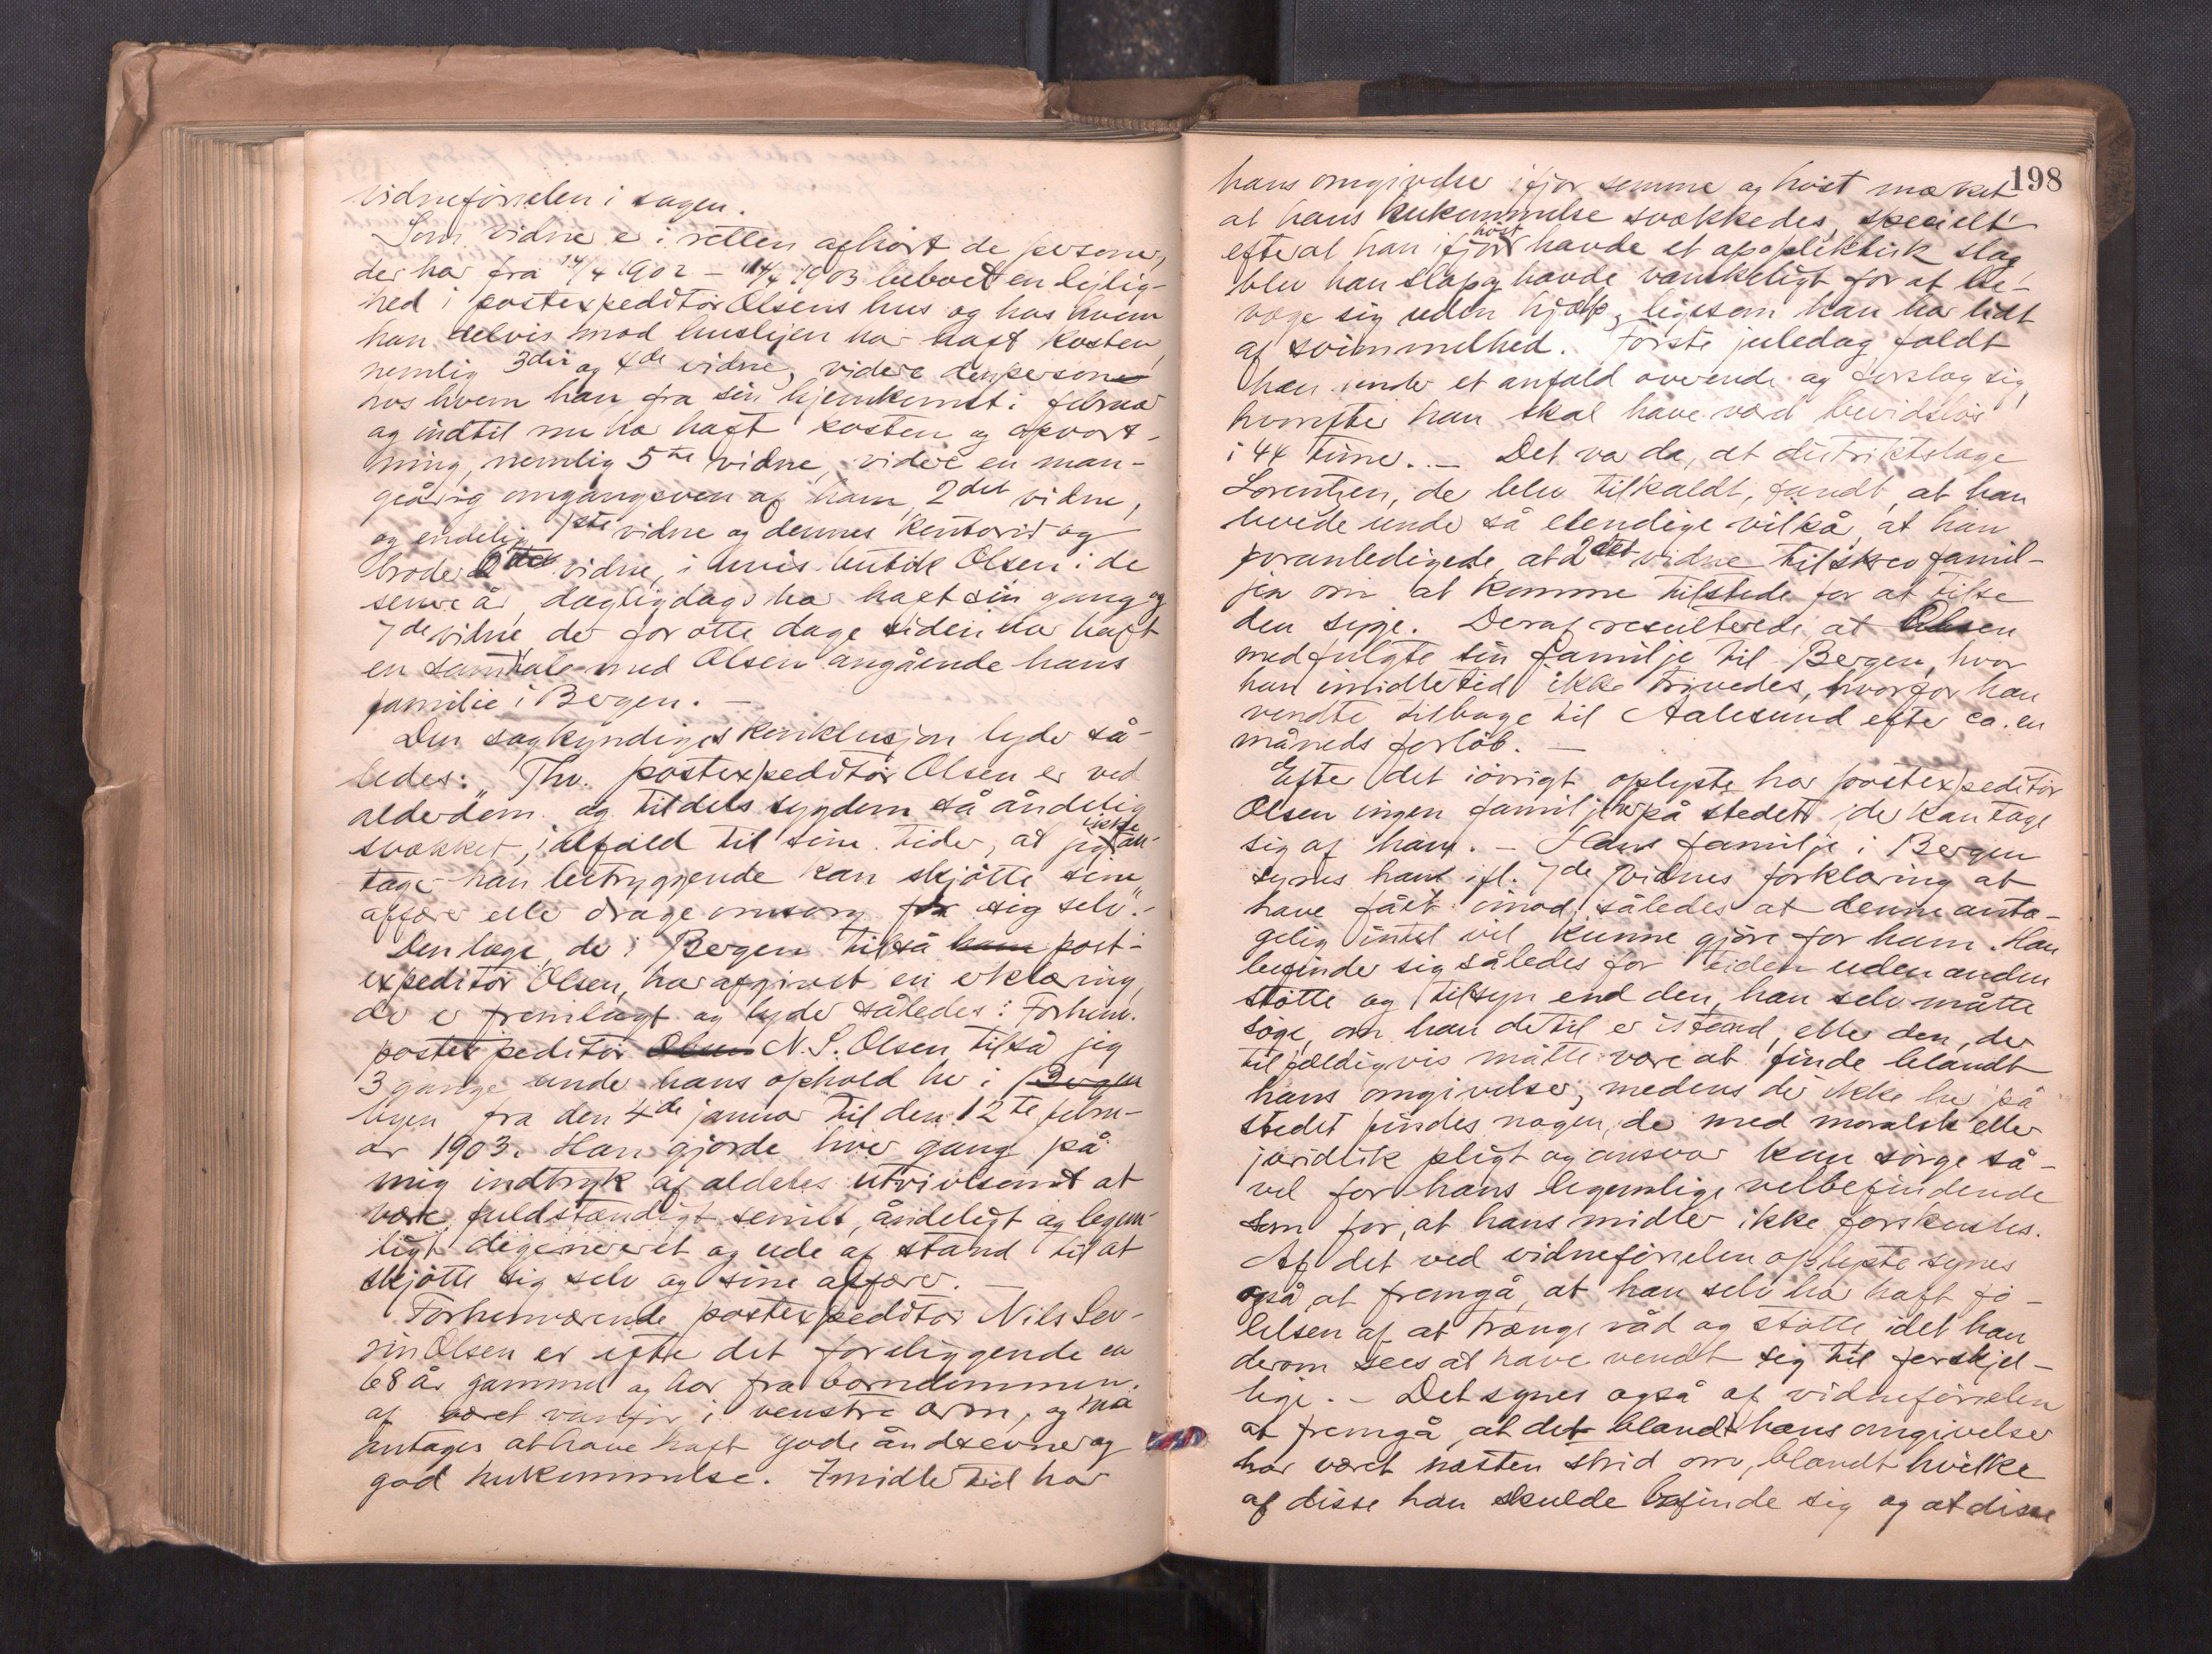 vidneførselen i sagen.
Som vidner er i retten afhørt de personer,
der har fra 14/4 1902 – 14/4 1903 beboet en lejlig-
hed i postexpeditør Olsens hus og hos hvem
han delvis mod huslejen har haft kosten,
nemlig 3die og 4de vidne, videre den person
hos hvem han fra sin hjemkomst i februar
og indtil nu har haft kosten og opvart-
ning, nemlig 5te vidne, videre en man-
geårig omgangsven af ham, 2det vidne,
og endelig 1ste vidne og dennes kontorist og
broder vidne, i hvis butik Olsen i de
senere år dagligdags har haft sin gang og
7de vidne der for otte dage siden har haft
en samtale med Olsen angående hans
familie i Bergen. –
Den sagkyndiges konklusjon lyder så-
ledes: "Fhv. postexpeditør Olsen er ved
alderdom og tildels sygdom så åndelig
svækket, ialfald til sine tider, at jeg ikke an-
tager han betryggende kan skjøtte sine
affærer eller drage omsorg for sig selv". –
Den læge, der i Bergen tilså ham post-
expeditør Olsen, har afgivet en erklæring,
der er fremlagt og lyder således: Forhenv.
postexpeditør Olsen N. S. Olsen tilså jeg
3 gange under hans ophold her i Bergen
byen fra den 4de januar til den 12te febru-
ar 1903. Han gjorde hver gang på
mig indtryk af aldeles utvivlsomt at
være fuldstændigt senilt, åndeligt og legem-
ligt degenereret og ude af stand til at
skjøtte sig selv og sine affærer. –
Forhenværende postexpeditør Nils Sev-
rin Olsen er efter det foreliggende en
68 år gammel og har fra barndommen
af været vanfør i venstre arm, og må
antages at have haft gode åndsevner og
god hukommelse. Imidlertid har
198
hans omgivelser ifjor sommer og høst mærket
at hans hukommelse svækkedes, specielt
efterat han ifjor høst havde et apoplektisk slag
blev han slap og havde vanskeligt for at be-
væge sig uden hjælp, ligesom han har lidt
af svimmelhed. Første juledag faldt
han under et anfald overende og forslog sig,
hvorefter han skal have været bevidstløs
i 44 timer. – Det var da, at distriktslæge
Lorentzen, der blev tilkaldt, fandt, at han
levede under så elendige vilkår, at han
foranledigede, at 2det vidne tilskrev famil-
jen om at komme tilstede for at tilse
den syge. Deraf resulterede, at Olsen
medfulgte sin familje til Bergen, hvor
han imidlertid ikke trivedes, hvorfor han
vendte tilbage til Aalesund efter ca. en
måneds forløb. –
Efter det iøvrigt oplyste har postexpeditør
Olsen ingen familje her på stedet, der kan tage
sig af ham. – Hans familje i Bergen
synes han ifl. 7de vidnes forklaring at
have fået imod, således at denne anta-
gelig intet vel kunne gjøre for ham. Han
befinder sig således for tiden uden anden
støtte og tilsyn end den, han selv måtte
søge, om han dertil er istand, eller den, der
tilfældigvis måtte være at finde blandt
hans omgivelser, medens der ikke her på
stedet findes nogen, der med moralsk eller
juridisk pligt og ansvar kan sørge så-
vel for hans legemlige velbefindende
som for, at hans midler ikke forskusles.
Af det ved vidneførselen oplyste synes
også at fremgå, at han selv har haft fø-
lelsen af at trænge råd og støtte, idet han
derom sees at have vendt sig til forskjel-
lige. – Det synes også af vidneførselen
at fremgå, at det blandt hans omgivelser
har været næsten strid om, blandt hvilke
af disse han skulde befinde sig og at disse